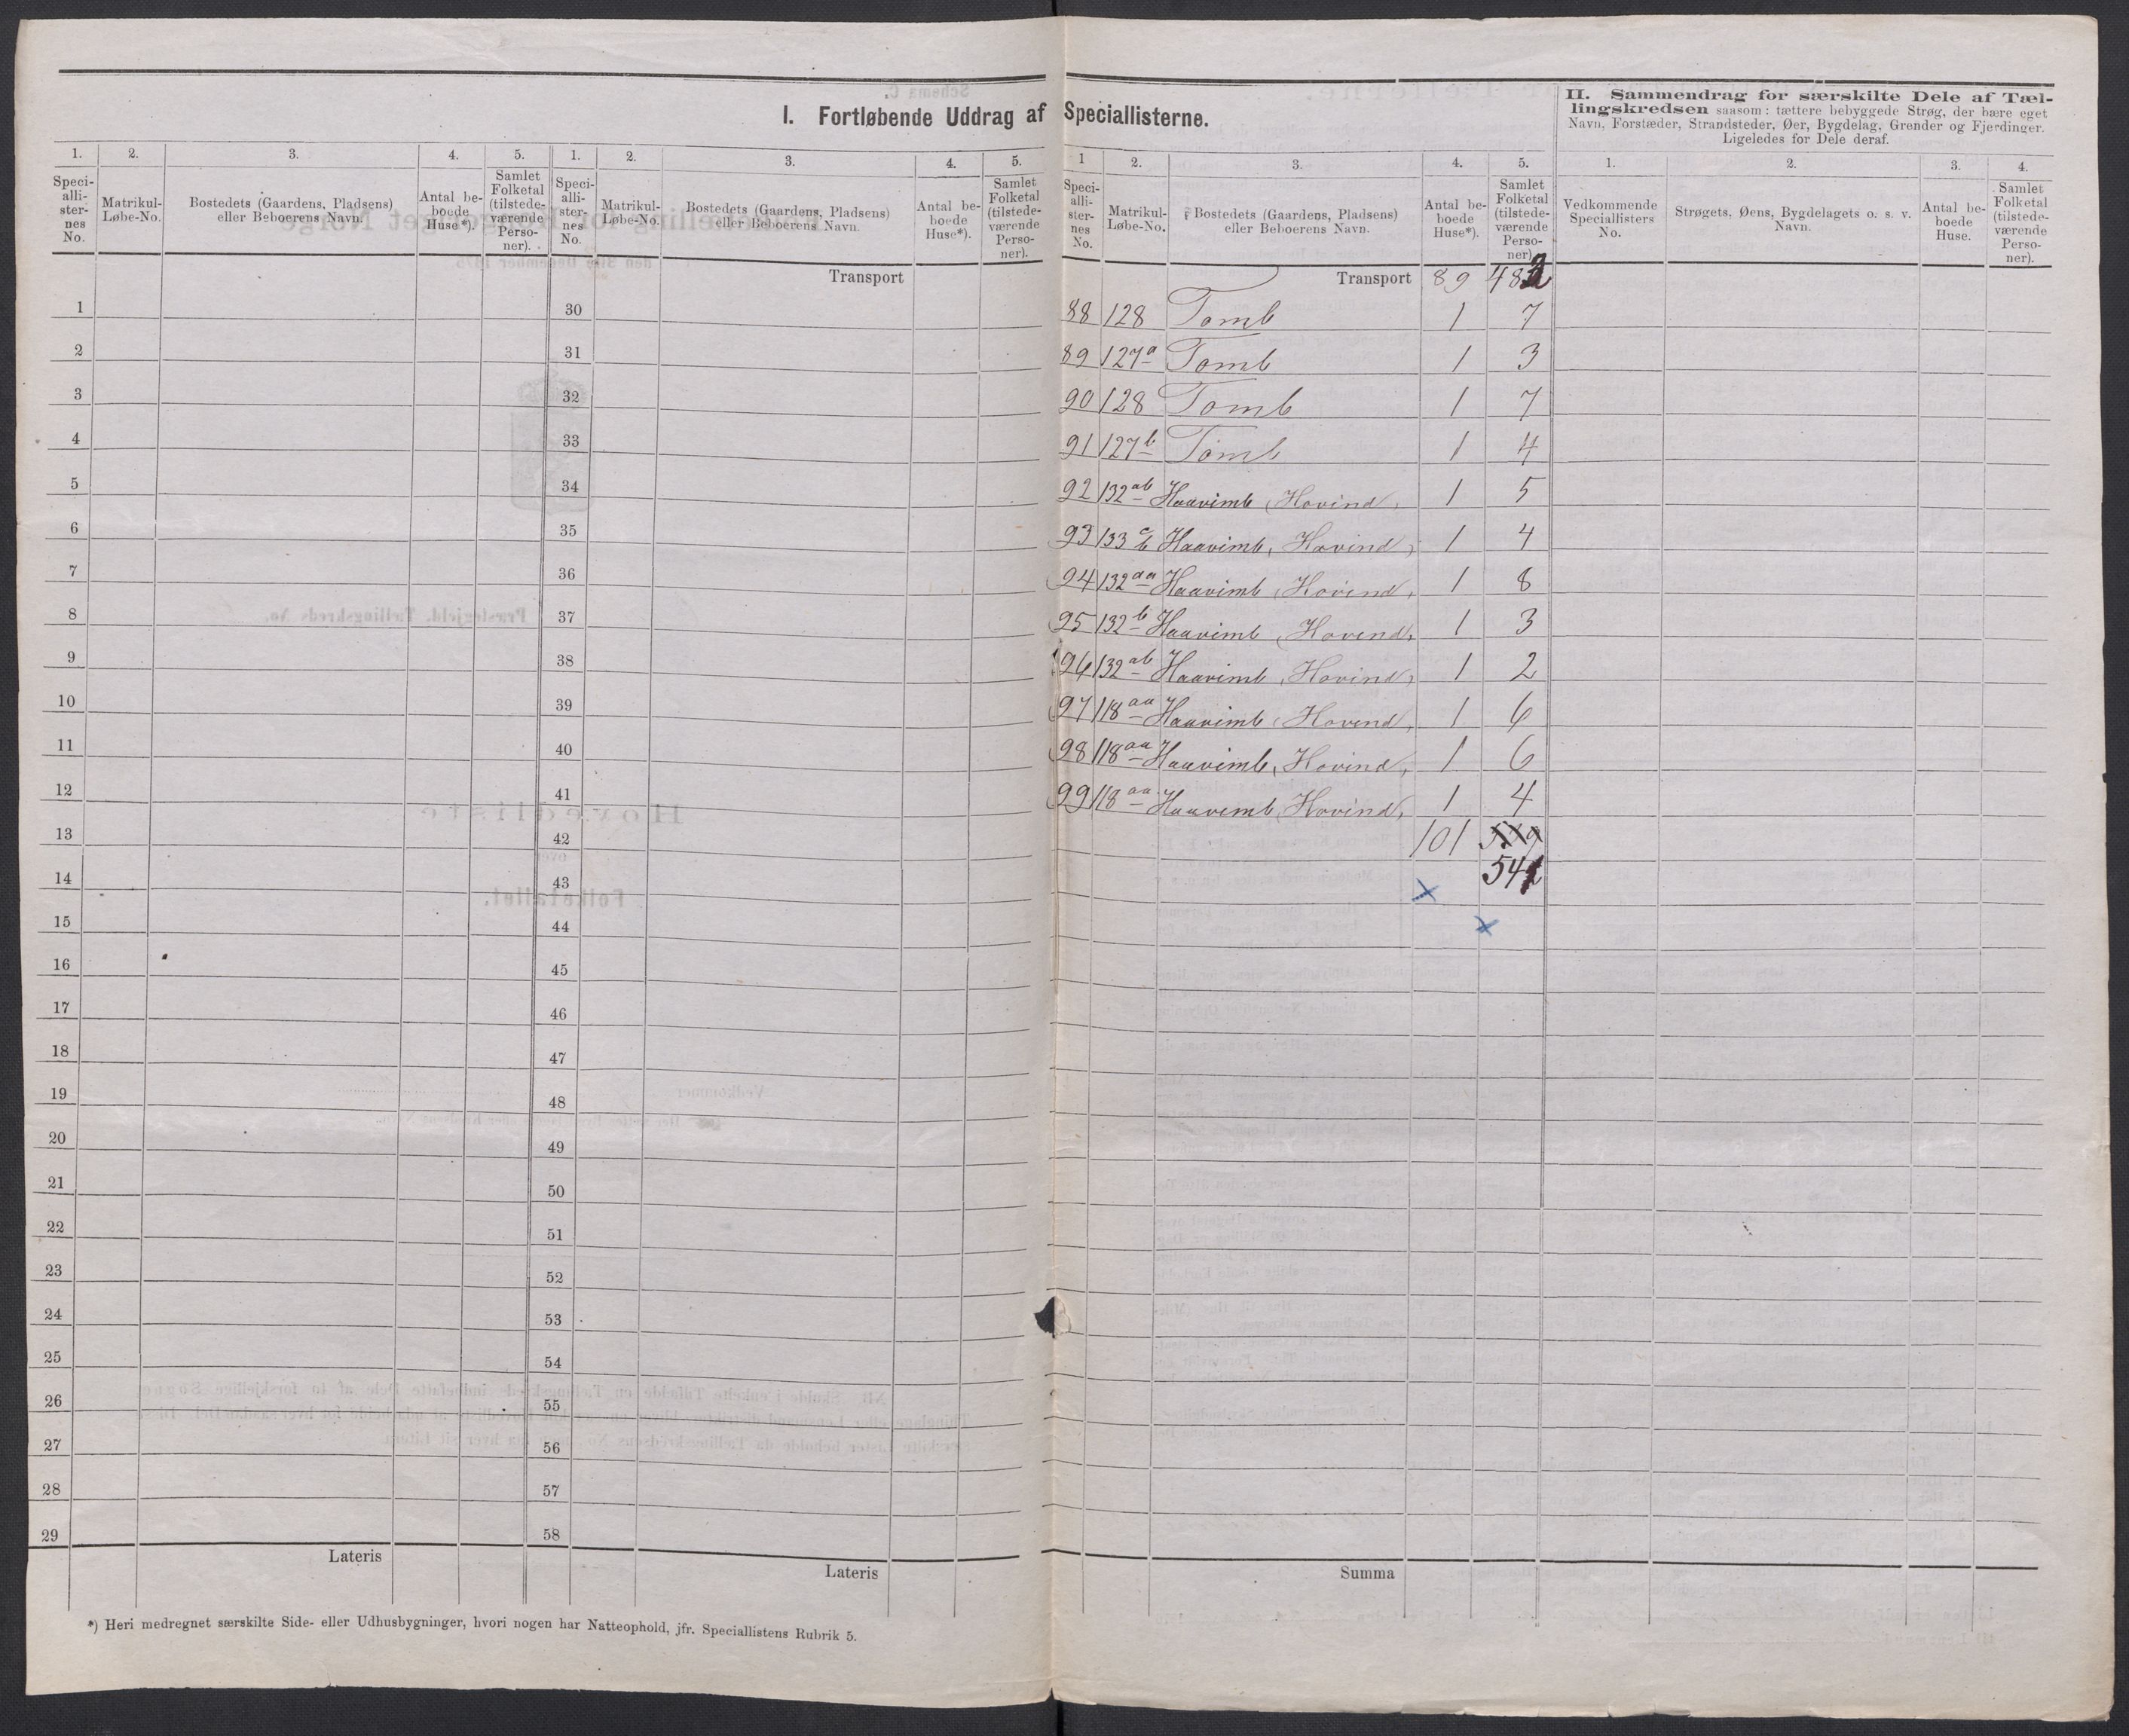 I. Fortløbende Uddrag af Speciallisterne.
II. Sammendrag for særskilte Dele af Tæl-
lingskredsen saasom: tættere bebyggede Strøg, der bære eget
Navn, Forstæder, Strandsteder, Øer, Bygdelag, Grender og Fjerdinger.
Ligeledes for Dele deraf.
1. 2. 3. 4. 5. 1. 2. 3. 4. 5. 1 2. 3. 4. 5. 1. 2. 3. 4.
Speci-
alli-
ster-
nes
No.
Matrikul-
Løbe-No.
Bostedets (Gaardens, Pladsens)
eller Beboerens Navn.
Antal be-
boede
Huse*).
Samlet
Folketal
(tilstede-
værende
Perso-
ner).
Speci-
alli-
ster-
nes
No.
Matrikul-
Løbe-No.
Bostedets (Gaardens, Pladsens)
eller Beboerens Navn.
Antal be-
boede
Huse*).
Samlet
Folketal
(tilstede-
værende
Perso-
ner).
Speci-
alli-
ster-
nes
No.
Matrikul-
Løbe-No.
Bostedets (Gaardens, Pladsens)
eller Beboerens Navn.
Antal be-
boede
Huse*).
Samlet
Folketal
(tilstede-
værende
Perso-
ner).
Vedkommende
Speciallisters
No.
Strøgets, Øens, Bygdelagets o. s. v.
Navn.
Antal be-
boede
Huse.
Samlet
Folketal
(tilstede-
værende
Perso-
ner).
Transport
1 30
2 31
3 32
4 33
5 34
6 35
7 36
8 37
9 38
10 39
11 40
12 41
13 42
14 43
15 44
16 45
17 46
18 47
19 48
20 49
21 50
22 51
23 52
24 53
25 54
26 55
27 56
28 57
29 58
Lateris Lateris
Transport 89
88 128 Tomb 1 7
89 127a Tomb 1 3
90 128 Tomb 1 7
91 127b Tomb 1 4
92 132ab Haavimb, Hovind, 1 5
93 133 Haavimb, Hovind, 1 4
94 132aa Haavimb, Hovind, 1 8
95 132b Haavimb, Hovind, 1 3
96 132ab Haavimb, Hovind, 1 2
97 118aa Haavimb, Hovind, 1 6
98 118aa Haavimb, Hovind, 1 6
99 118aa Haavimb, Hovind, 1 4
101
Summa
*) Heri medregnet særskilte Side- eller Udhusbygninger, hvori nogen har Natteophold, jfr. Speciallistens Rubrik 5.